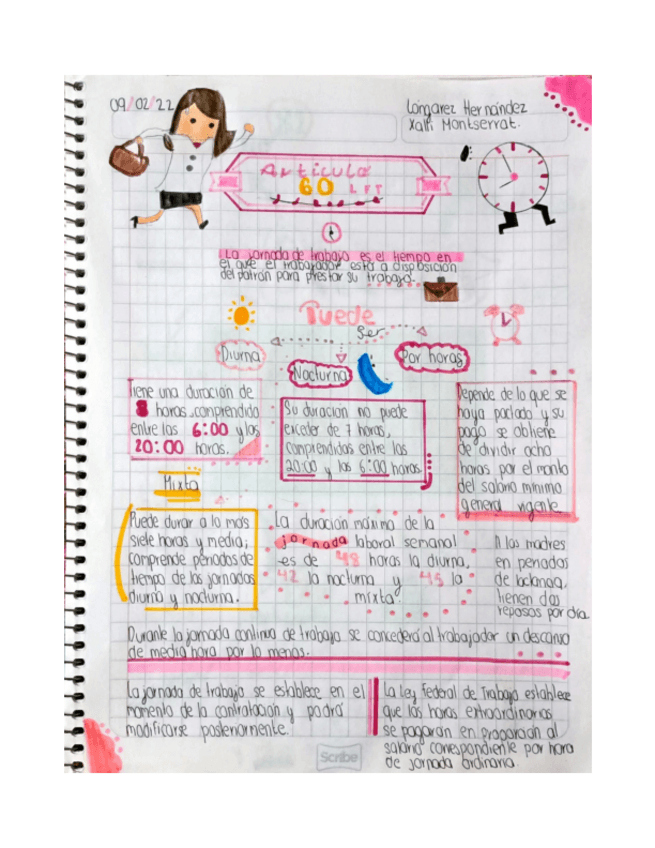 09/02/22
Longarez Hernández
Xalli Montserrat.
Artículo
60 LFT
La jornada de trabajo es el tiempo en
el que el trabajador está a disposición
del patrón para prestar su trabajo.
Puede
ser
Diurna
Nocturna
Por horas
Tiene una duración de
8 horas, comprendido
entre las 6:00 y las
20:00 horas.
Su duración no puede
exceder de 7 horas,
comprendidas entre las
20:00 y las 6:00 horas
Depende de lo que se
haya pactado y su
pago se obtiene
de dividir ocho
horas por el monto
del salario mínimo
general vigente
Mixta
Puede durar a lo más
siete horas y media;
comprende períodos de
tiempo de las jornadas
diurna y nocturna.
La duración máxima de la
jornada laboral semanal
es de 48 horas la diurna,
42 la nocturna y 45 la
mixta.
A las madres
en periodos
de lactancia,
tienen dos
reposos por día.
Durante la jornada continua de trabajo se concederá al trabajador un descanso
de media hora por lo menos.
La jornada de trabajo se establece en el
momento de la contratación y podrá
modificarse posteriormente.
La Ley Federal de Trabajo establece
que las horas extraordinarias
se pagarán en proporción al
salario correspondiente por hora
de jornada ordinaria.
Scribe